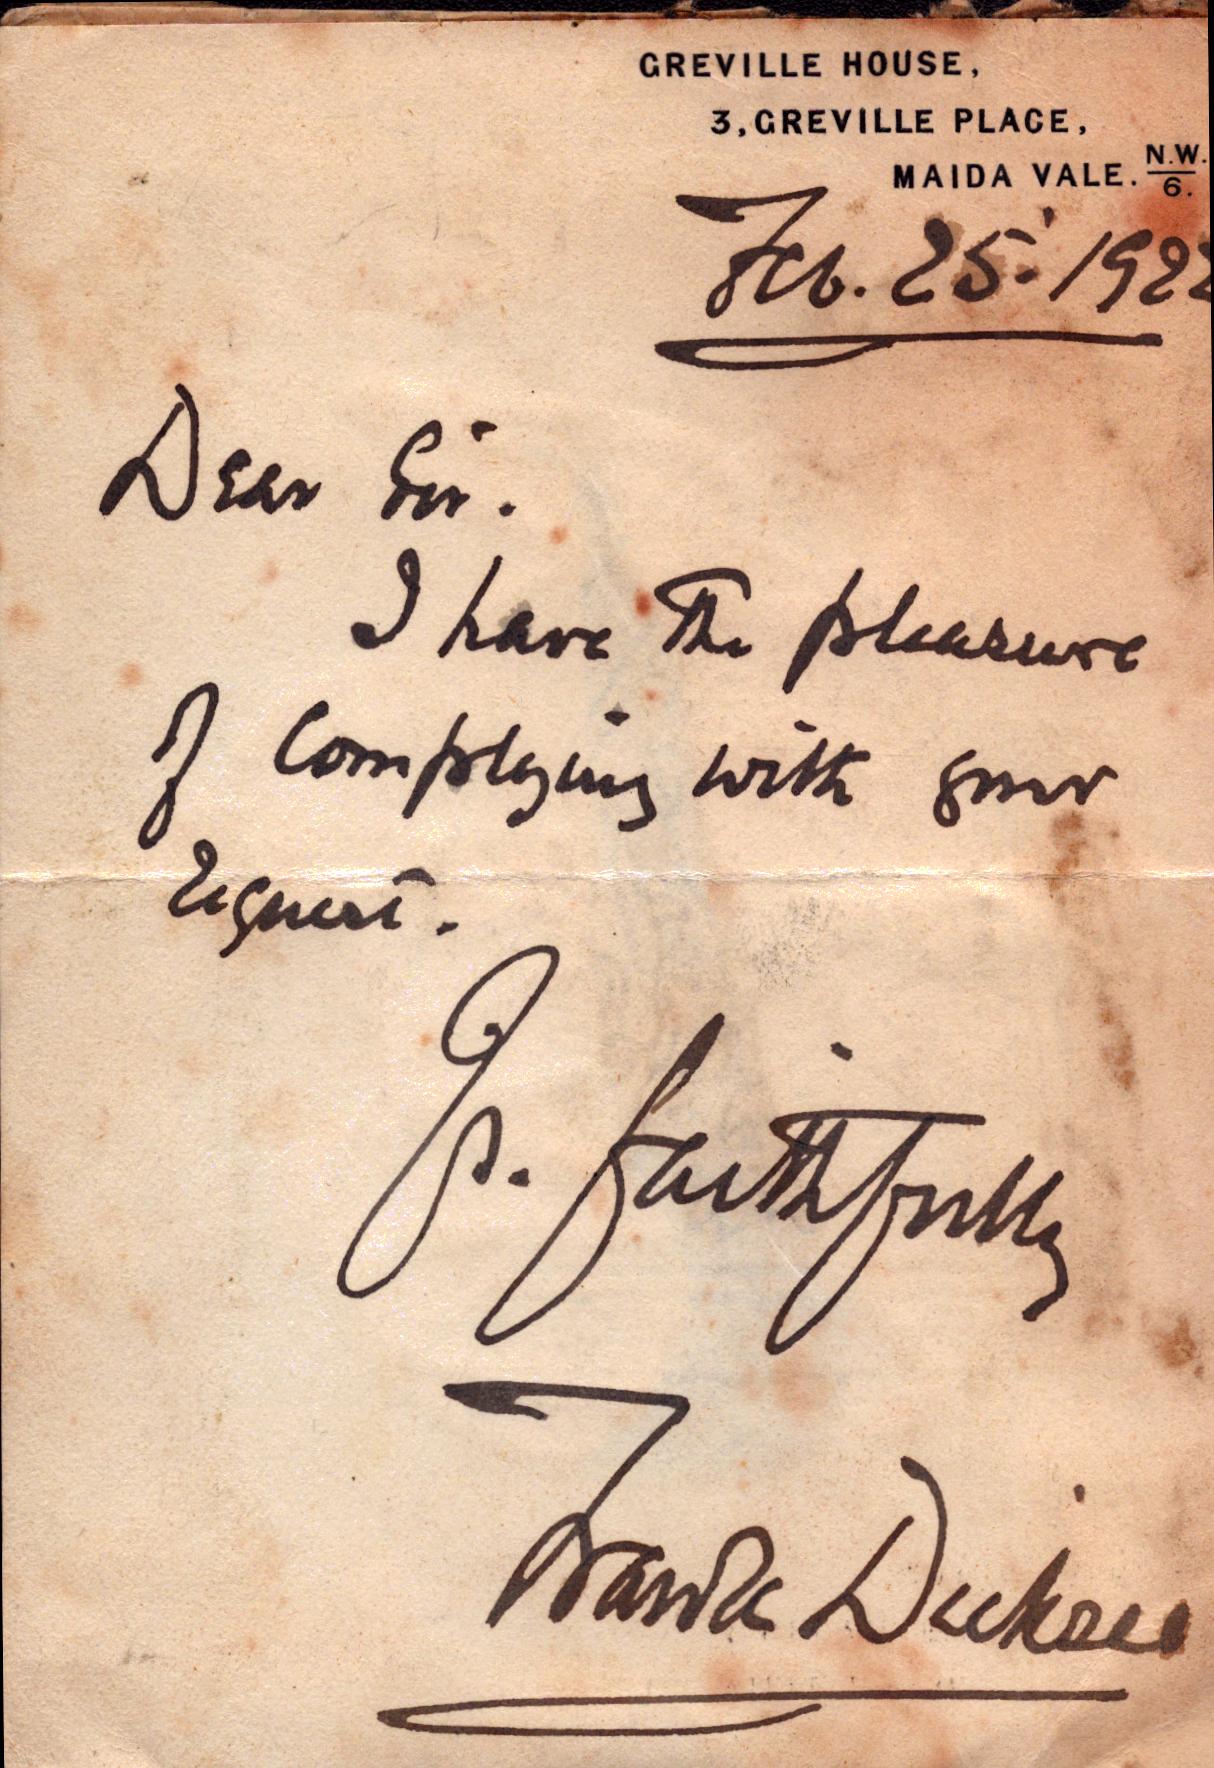 GREVILLE HOUSE,
3, GREVILLE PLACE,
MAIDA VALE. N.W. 6.
Feb. 25. 1922
Dear Sir.
I have the pleasure
of complying with your
request.
Ys. faithfully
Frank Dicksee